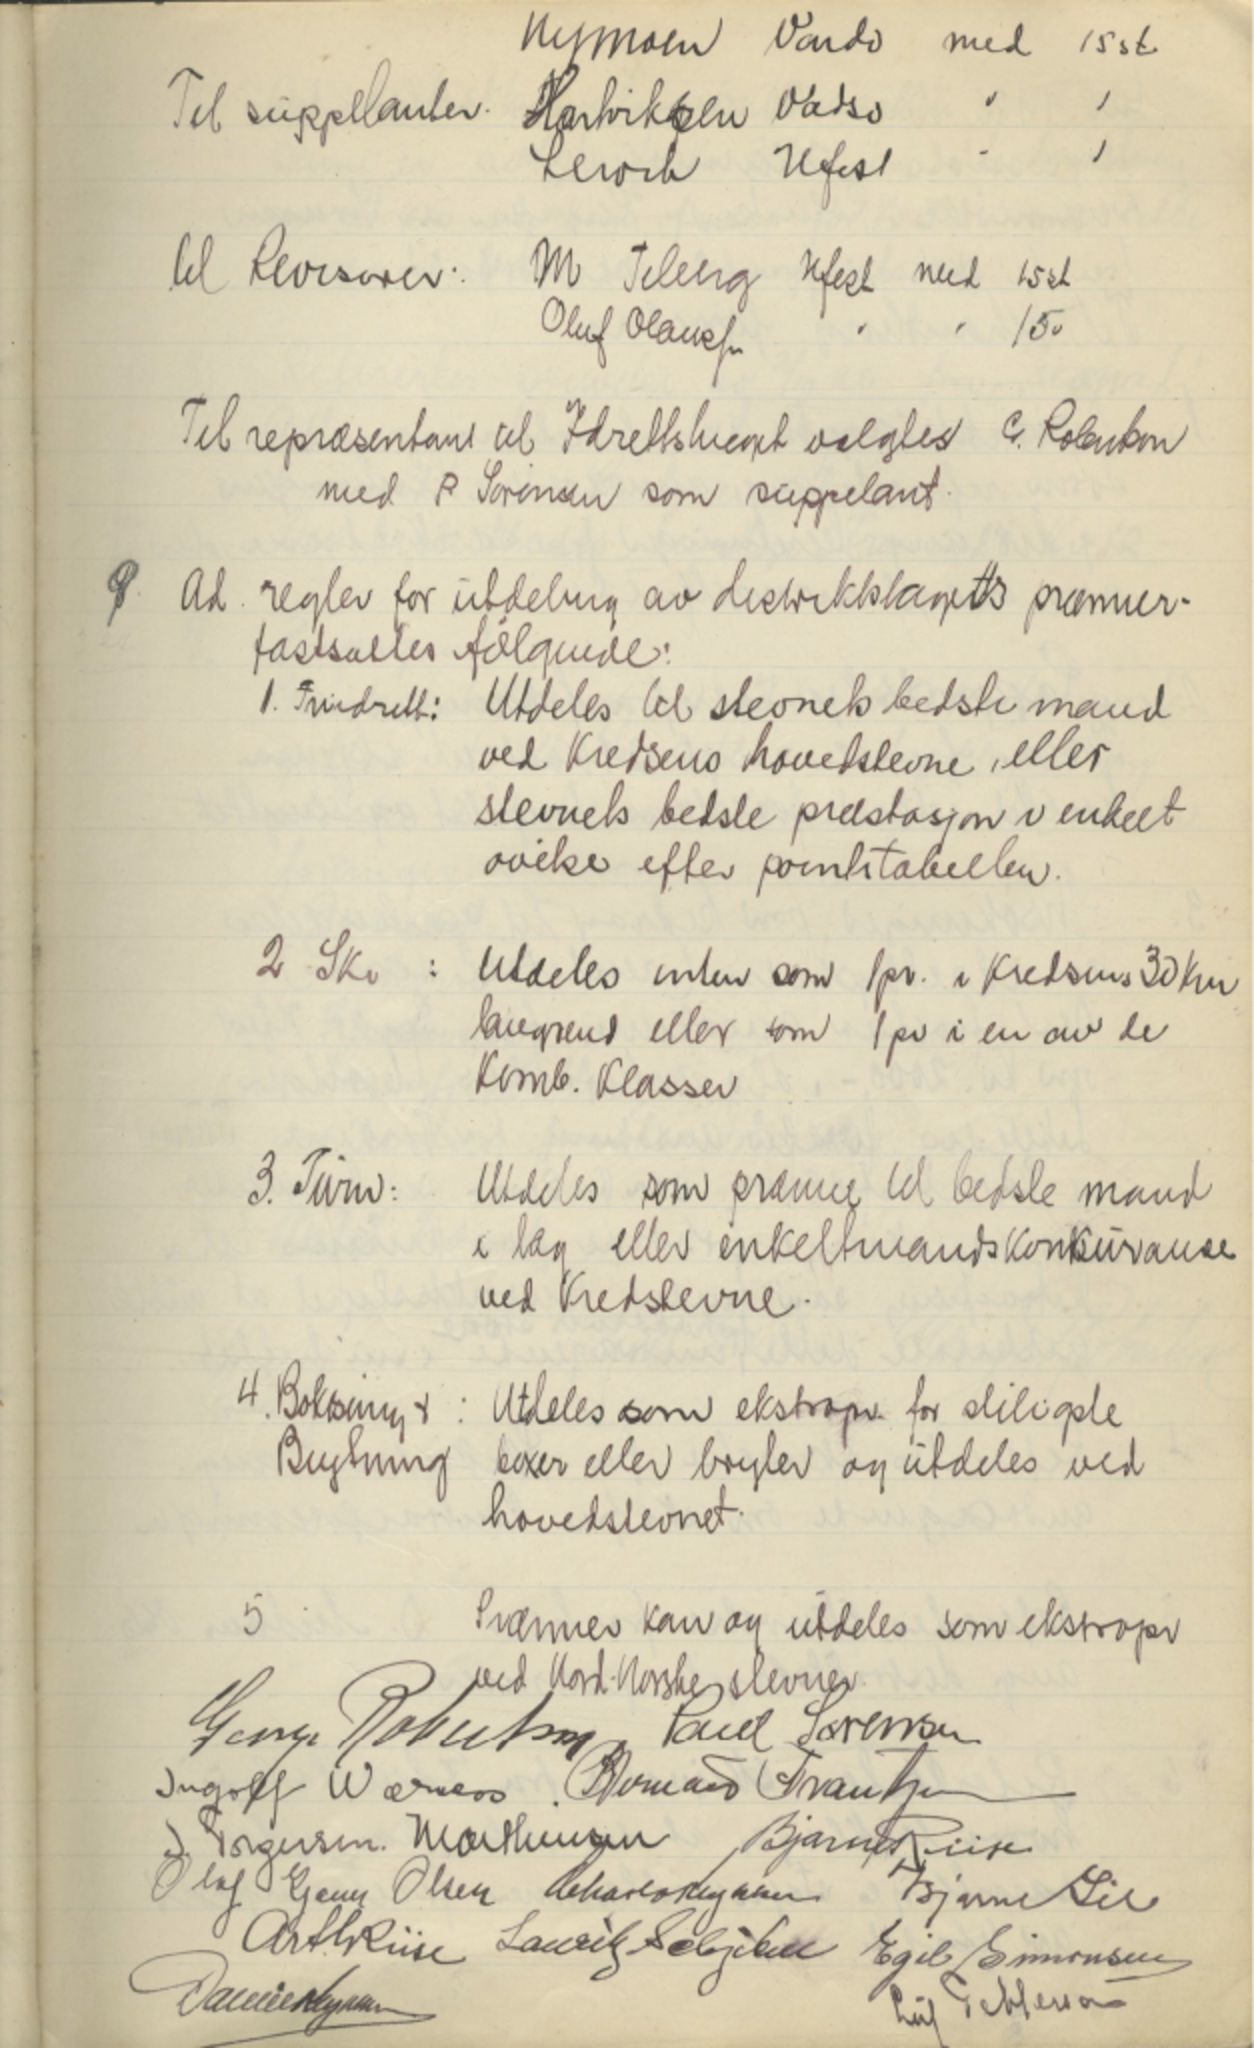 Nymoen Vardø med 15 st
Til suppllanter. Hartviksen Vadsø " "
Lerock Hfest " "
til Revisorer: M Teleng Hfest med 15 st
Oluf Olausen " " 15 "
Til repræsentant til Idrettstinget valgtes G. Robertson
med P Sørensen som suppelant.
9. Ad. regler for utdeling av distriktslagets præmier-
fastsattes følgende:
1. Friidrett: Utdeles til stevnets bedste mand
ved Kredsens hovedstevne, eller
stevnets bedste præstasjon i enkelt
øvelse efter pointstabellen.
2 Ski : Utdeles enten som 1 pr. i Kredsens 30 Km
langrend eller som 1 pr i en av de
Komb. Klasser
3. Turn: Utdeles som præmie til bedste mand
i lag eller enkeltmandskonkurranse
ved Kredsstevne.
4. Boksing & : Utdeles som ekstrapr. for stiligste
Brytning bokser eller bryter og utdeles ved
hovedstevnet.
5 Præmier kan og utdeles som ekstrapr
ved Nord-Norske stevner.
George Robertson. Paul Sørensen
Ingolf Wærnes. Bernard Frantzen
J. Torgersen. Mathisen Bjarne Riise
Olaf Olsen Nymoen Bjarne Lie
Arth Riise Lauritz Egil Simonsen
Daniel Nymoen Leif Pettersen